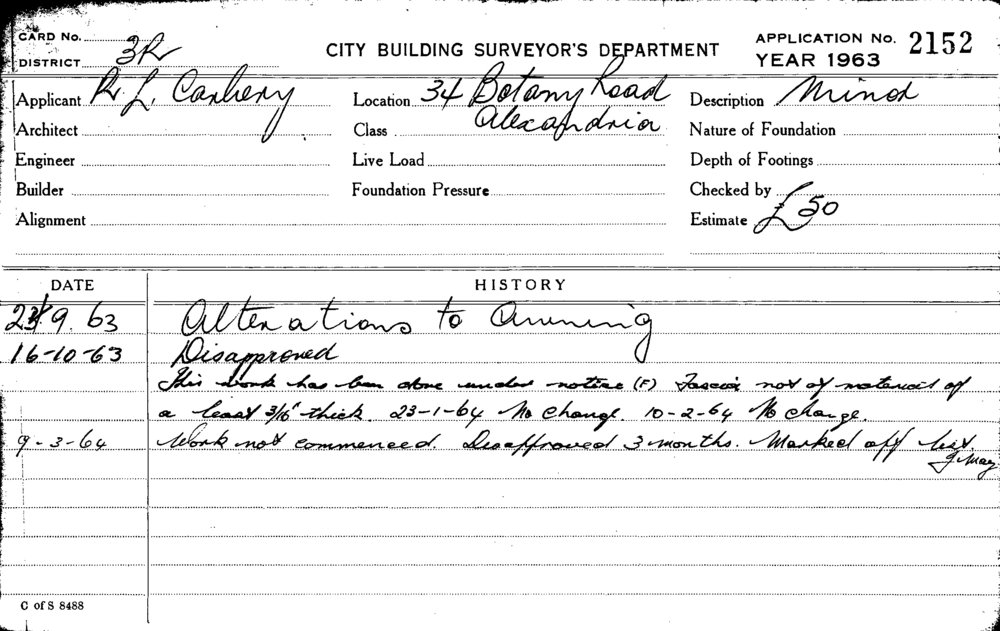 CARD No.
DISTRICT 3R
CITY BUILDING SURVEYOR'S DEPARTMENT
APPLICATION No. 2152
YEAR 1963
Applicant R. L. Carbery
Location 34 Botany Road
Alexandria
Description Minor
Architect
Class
Nature of Foundation
Engineer
Live Load
Depth of Footings
Builder
Foundation Pressure
Checked by
Alignment
Estimate £50
DATE
HISTORY
9. 63 Alterations to Awning
16-10-63 Disapproved
This work has been done under notice (F) Fascia not of material of
a least 3/16" thick. 23-1-64 No Change. 10-2-64 No Change.
9-3-64 Work not commenced. Disapproved 3 months. Marked off list.
C of S 8488